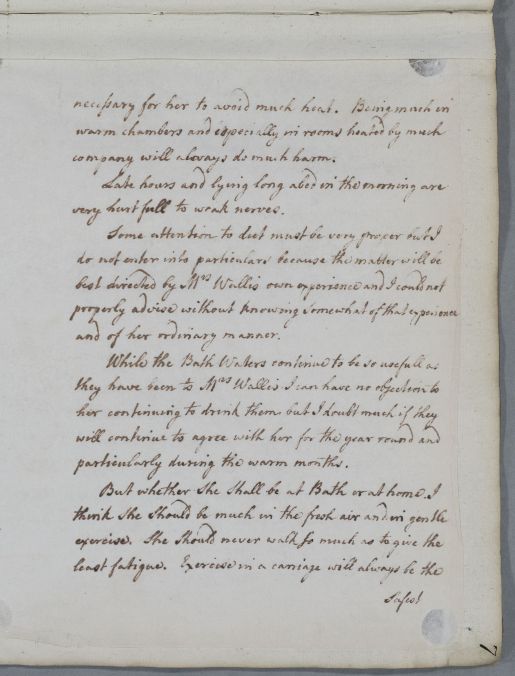 necessary for her to avoid much heat. Being much in
warm chambers and especially in rooms heated by much
company will always do much harm.
Late hours and lying long abed in the morning are
very hurtfull to weak nerves.
Some attention to diet must be very proper but I
do not enter into particulars because the matter will be
best directed by Mrs Wallis own experience and I could not
properly advise without knowing somewhat of that experience
and of her ordinary manner.
While the Bath Waters continue to be so usefull as
they have been to Mrs Wallis I can have no objection to
her continuing to drink them but I doubt much if they
will continue to agree with her for the year round and
particularly during the warm months.
But whether she shall be at Bath or at home I
think she should be much in the fresh air and in gentle
exercise. She should never walk so much as to give the
least fatigue. Exercise in a carriage will always be the
safest
7